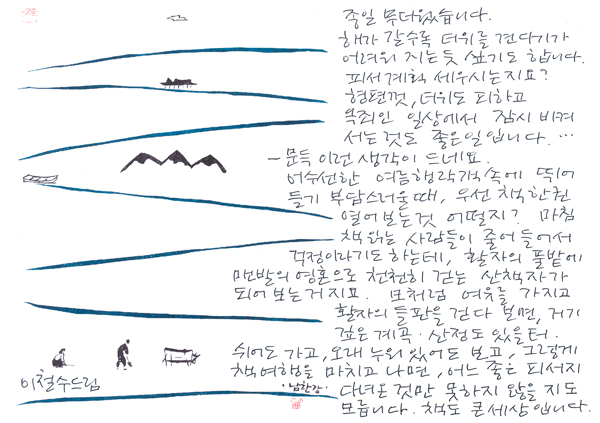 종일 무더웠습니다.
해가 갈수록 더위를 견디기가
어려워 지는듯 싶기도 합니다.
피서계획 세우시는지요?
형편껏, 더위도 피하고
옥죄인 일상에서 잠시 비켜
서는 것도 좋은일 입니다. …
– 문득 이런 생각이 드네요.
어수선한 여름행락객 속에 뛰어
들기 부담스러울때, 우선 책 한권
열어 보는 것 어떨지? 마침
책 읽는 사람들이 줄어 들어서
걱정이라기도 하는데, 활자의 풀밭에
맨발의 영혼으로 천천히 걷는 산책자가
되어 보는거지요. 모처럼 여유를 가지고
활자의 들판을 걷다 보면, 거기
깊은 계곡·산정도 있을 터.
쉬어도 가고, 오래 누워 있어도 보고, 그렇게
책여행을 마치고 나면, 어느 좋은 피서지
다녀온 것만 못하지 않을 지도
모릅니다. 책도 큰세상입니다.
이철수드림
·남한강·